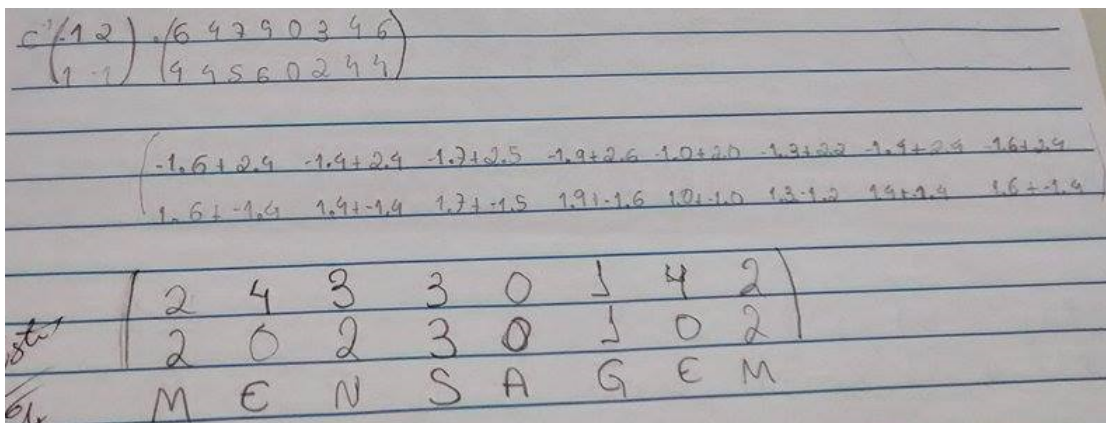 C⁻¹(-1 2) · (6 4 7 9 0 3 4 6)
(1 -1) (4 4 5 6 0 2 4 4)
(-1.6+2.4 -1.4+2.4 -1.7+2.5 -1.9+2.6 -1.0+2.0 -1.3+2.2 -1.4+2.4 -1.6+2.4
1.6+-1.4 1.4+-1.4 1.7+-1.5 1.9+-1.6 1.0+-1.0 1.3-1.2 1.4+-1.4 1.6+-1.4)
2 4 3 3 0 1 4 2
2 0 2 3 0 1 0 2
M E N S A G E M